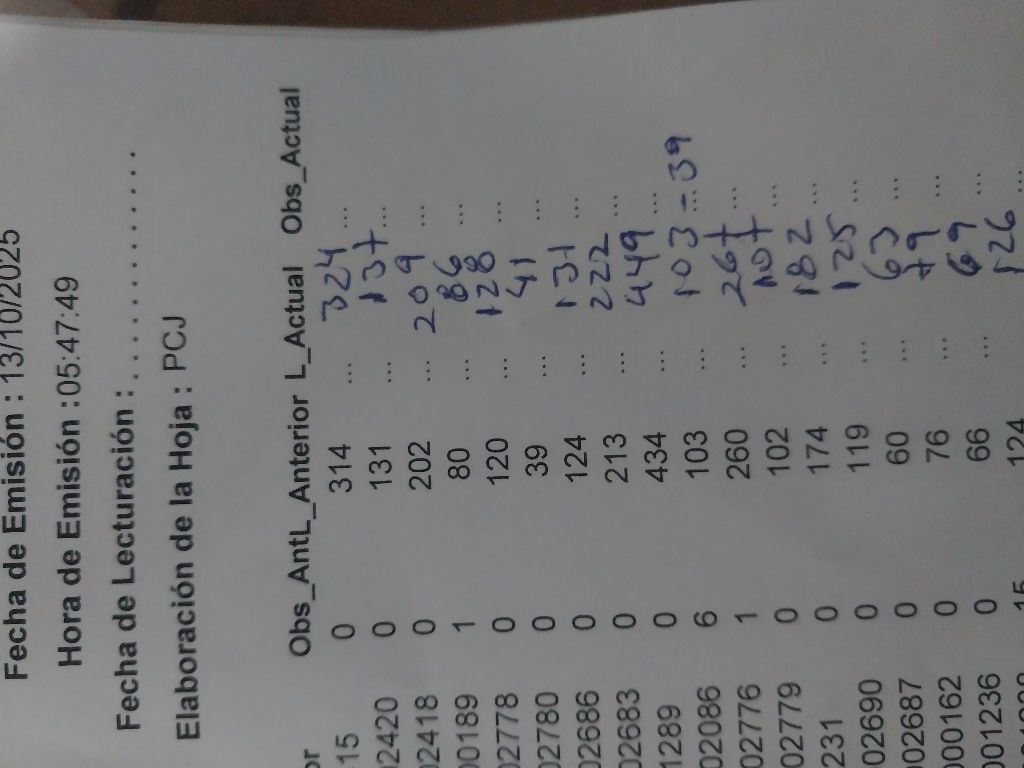 Fecha de Emisión : 13/10/2025
Hora de Emisión : 05:47:49
Fecha de Lecturación : . . . . . . . . . . . . . .
Elaboración de la Hoja : PCJ
or Obs_AntL_Anterior L_Actual Obs_Actual
15 0 314 ... 324 ...
02420 0 131 137 ...
02418 0 202 ... 209 ...
00189 1 80 86 ...
02778 0 120 ... 128 ...
02780 0 39 ... 41 ...
02686 0 124 ... 131 ...
02683 0 213 ... 222 ...
1289 0 434 ... 449 ...
02086 6 103 ... 103 - 39
02776 1 260 ... 267 ...
02779 0 102 ... 107 ...
231 0 174 ... 182 ...
02690 0 119 ... 125 ...
02687 0 60 ... 63 ...
000162 0 76 ... 79 ...
001236 0 66 ... 69 ...
15 124 126 ...